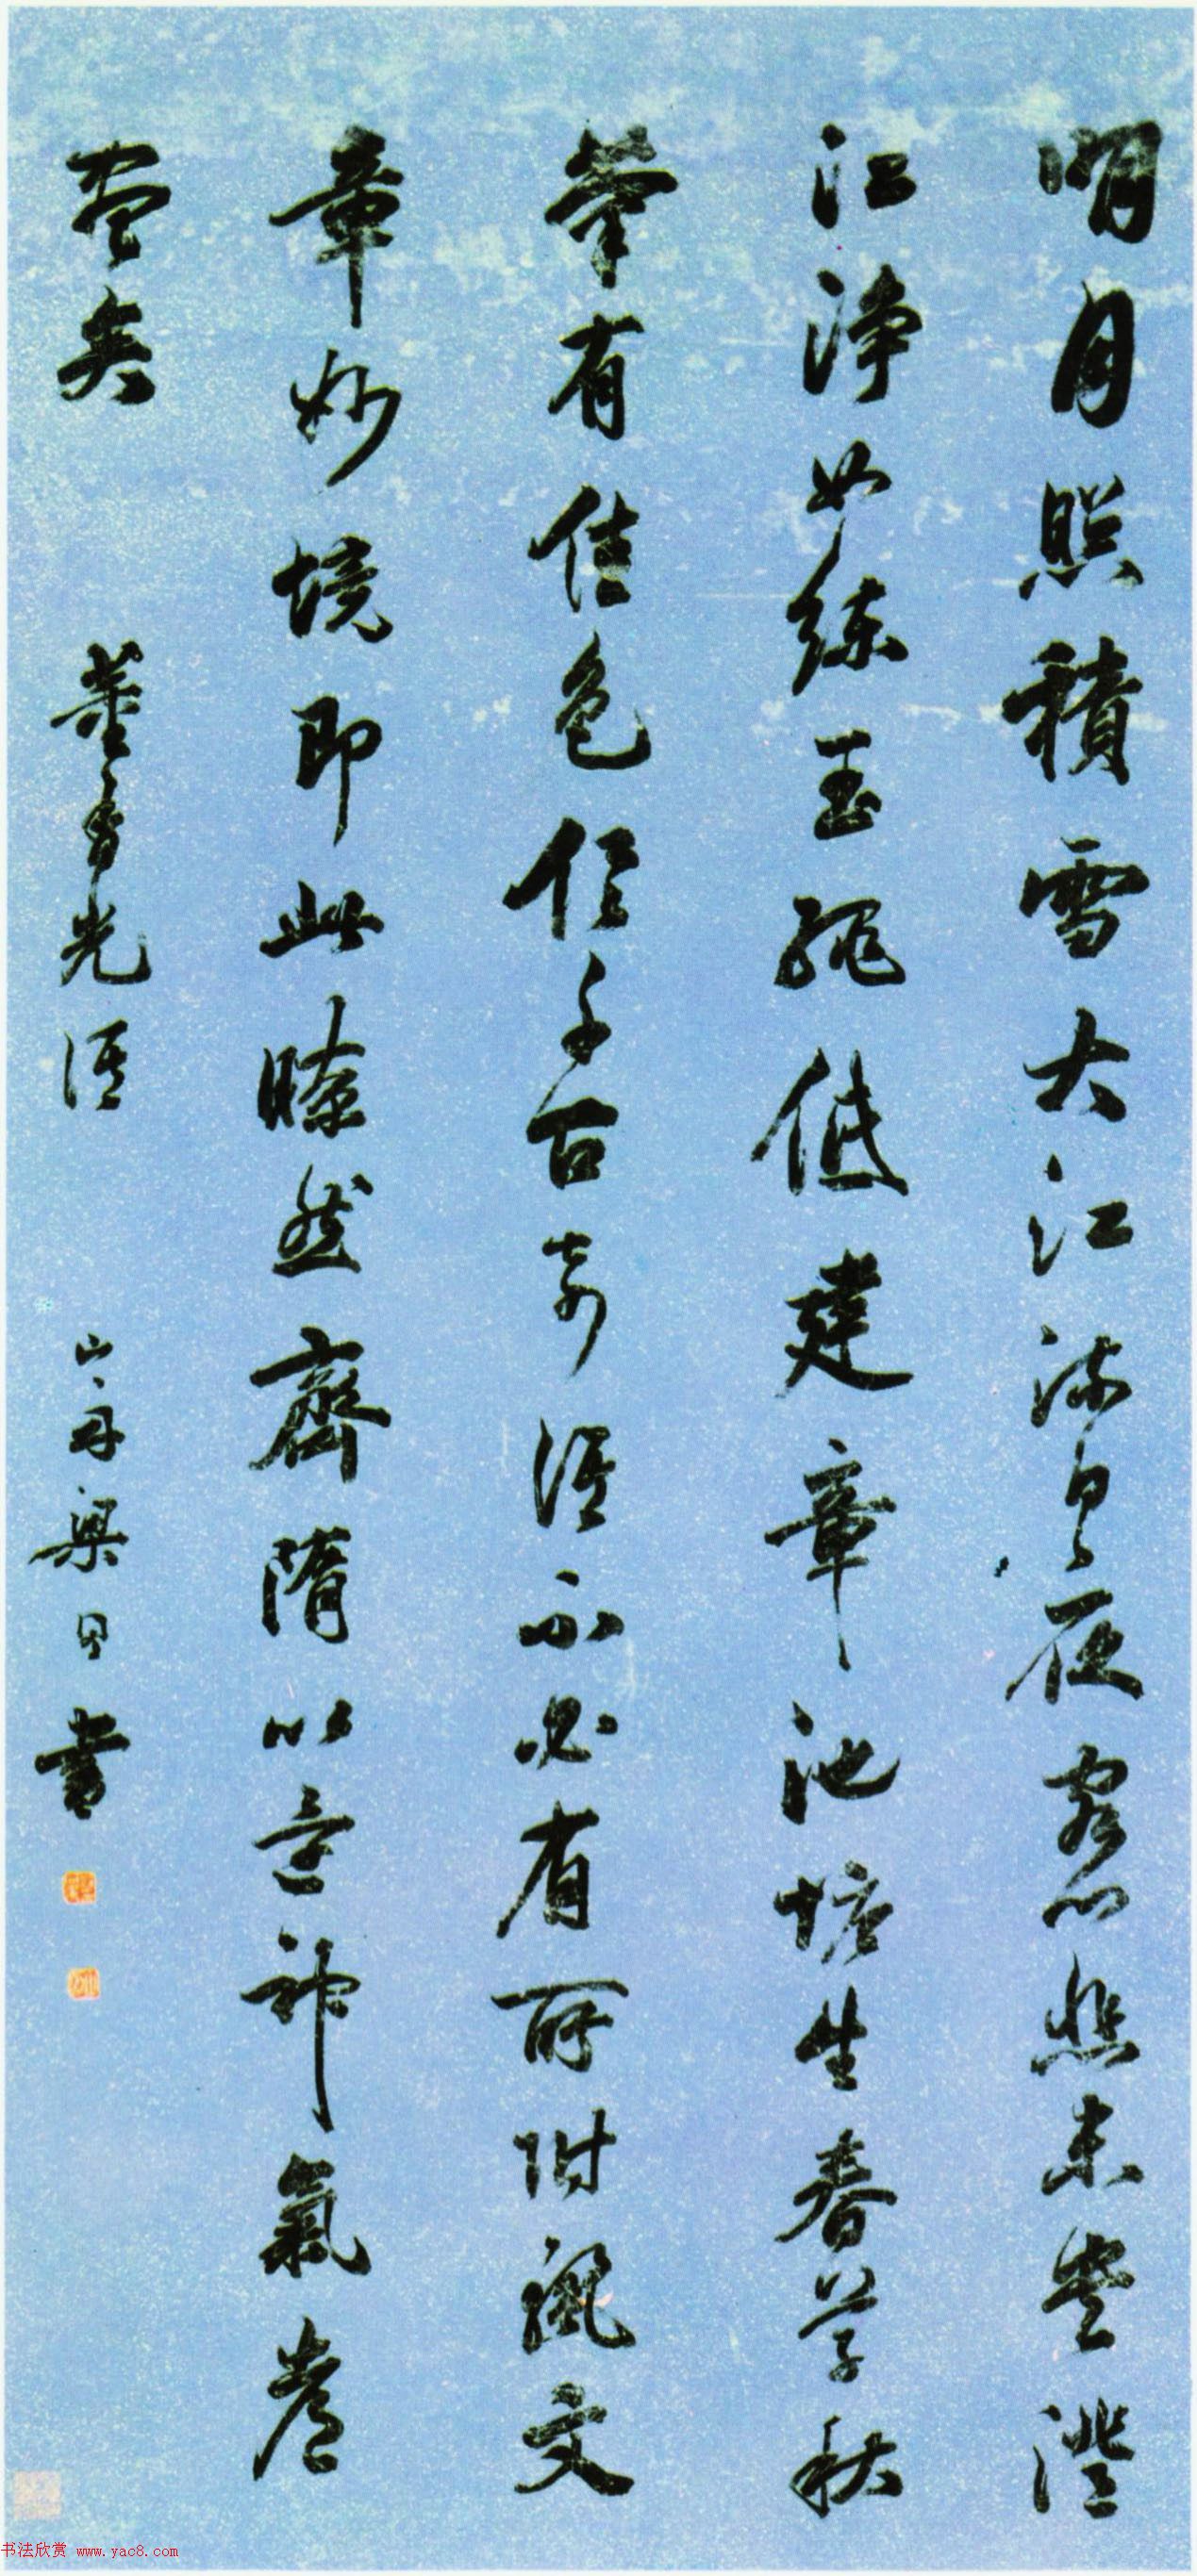 明月照積雪大江流日夜客心悲未央澄
江淨如練玉繩低建章池塘生春草秋
菊有佳色俱千古奇語不必有所附麗文
章妙境即此瞭然齊隋以還神氣都
盡矣 董香光語 山舟梁同書
书法欣赏 www.yac8.com